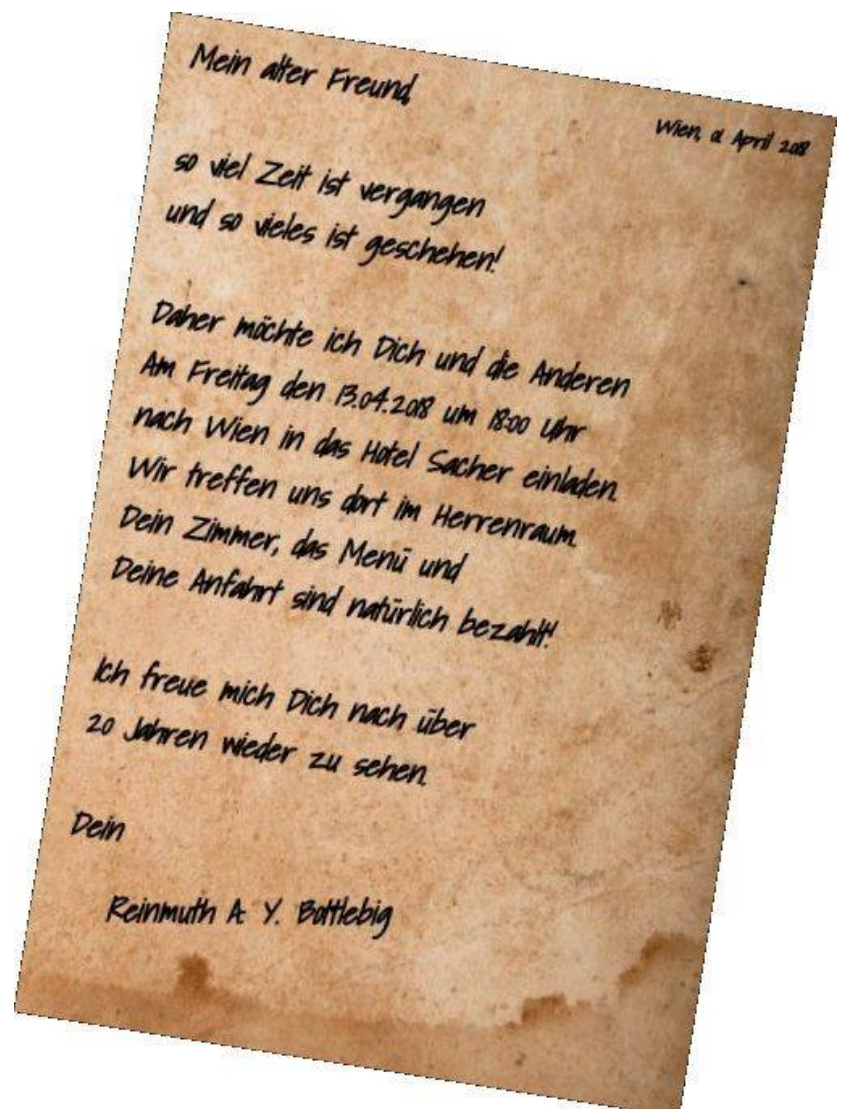 Mein alter Freund,
Wien, 01 April 2018
so viel Zeit ist vergangen
und so vieles ist geschehen!
Daher möchte ich Dich und die Anderen
Am Freitag den 13.04.2018 um 18:00 Uhr
nach Wien in das Hotel Sacher einladen.
Wir treffen uns dort im Herrenraum.
Dein Zimmer, das Menü und
Deine Anfahrt sind natürlich bezahlt!
Ich freue mich Dich nach über
20 Jahren wieder zu sehen.
Dein
Reinmuth A. Y. Bottlebig